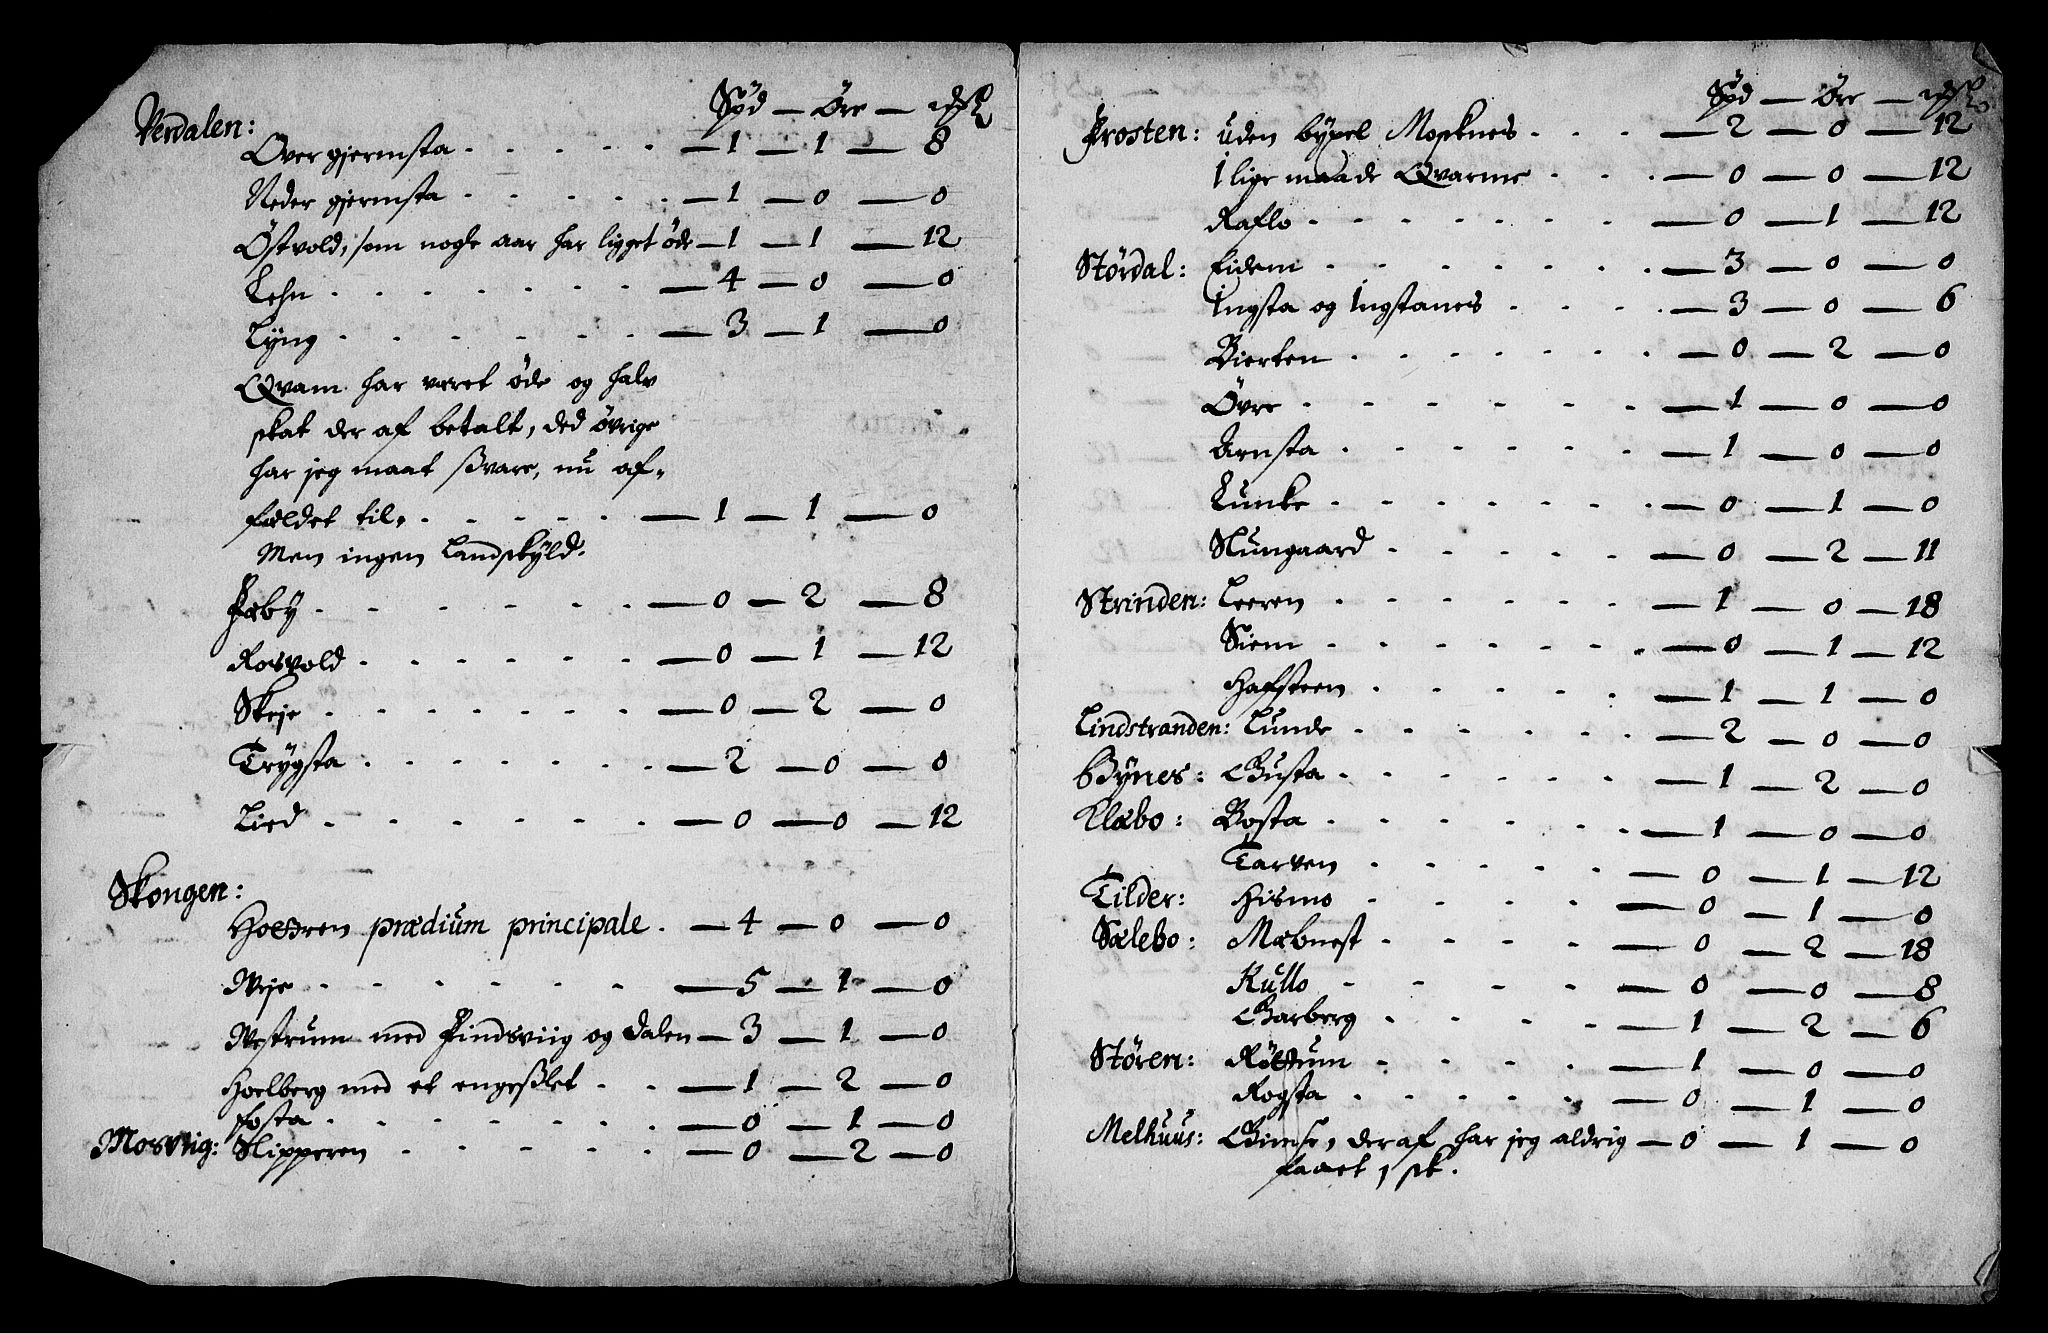 Spd — Öre — mrk
Verdalen:
Over gjermsta . . . . . — 1 — 1 — 8
Neder gjermsta . . . . . — 1 — 0 — 0
Östvold, som nogle aar har ligget öde — 1 — 1 — 12
Lehn . . . . . . . — 4 — 0 — 0
Lyng . . . . . . — 3 — 1 — 0
Qvam har været öde og halv
skat der af betalt, ded övrige
har jeg maat svare, nu af-
fældet til. . . . . . — 1 — 1 — 0
Men ingen Landskyld.
Fæby . . . . . . — 0 — 2 — 8
Rosvold . . . . . . — 0 — 1 — 12
Skeje . . . . . . . — 0 — 2 — 0
Trygsta . . . . . . — 2 — 0 — 0
Lied . . . . . . — 0 — 0 — 12
Skongen:
Holtren prædium principale . — 4 — 0 — 0
Weje . . . . . . — 5 — 1 — 0
Westrum med Findsviig og Dalen — 3 — 1 — 0
Hoelberg med et engeslet . . — 1 — 2 — 0
Fosta . . . . . . . — 0 — 1 — 0
Mosviig: Slipperen . . . . . — 0 — 2 — 0
Spd — Öre — mrk
Frosten: uden bygsel Mosknes . . . — 2 — 0 — 12
I lige maade Qvarme . . . — 0 — 0 — 12
Raflo . . . . . . . — 0 — 1 — 12
Stördal: Eidem . . . . . . . — 3 — 0 — 0
Ingsta og Ingstanes . . . . — 3 — 0 — 6
Bierken . . . . . . . — 0 — 2 — 0
Övre . . . . . . . — 1 — 0 — 0
Arnsta . . . . . . — 1 — 0 — 0
Lunke . . . . . . . — 0 — 1 — 0
Slungaard . . . . . — 0 — 2 — 11
Strinden: Leeren . . . . . . — 1 — 0 — 18
Siem . . . . . . . — 0 — 1 — 12
Hafsteen . . . . . — 1 — 1 — 0
Lindstranden: Lunde . . . . . . — 2 — 0 — 0
Bynes: Gusta . . . . . . — 1 — 2 — 0
Klæbo: Bosta . . . . . . — 1 — 0 — 0
Tarven . . . . . — 0 — 1 — 12
Tilder: Hismo . . . . — 0 — 1 — 0
Sælebo: Mæbnest . . . . — 0 — 2 — 18
Kullo . . . . — 0 — 0 — 8
Garberg . . . . — 1 — 2 — 6
Stören: Röttum . . . . — 1 — 0 — 0
Rogsta . . . . . — 0 — 1 — 0
Melhuus: Gimse, deraf har jeg aldrig — 0 — 1 — 0
faaet 1 sk.